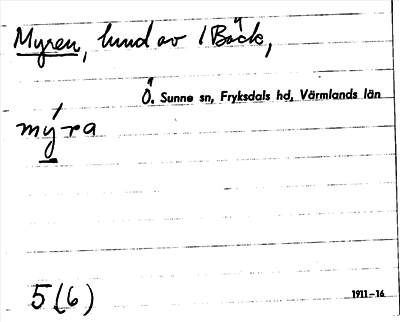 Myren, lund av 1 Bäck,
Ö. Sunne sn, Fryksdals hd, Värmlands län
mýra
5(6)
1911-16